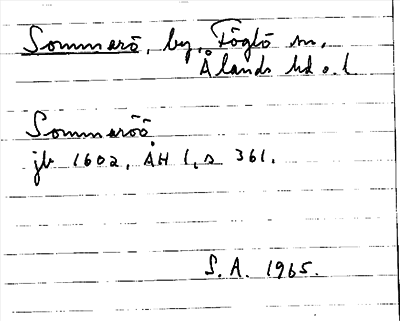 Sommarö, by, Föglö sn,
Ålands hd o. l
Sommeröö
jb 1602, ÅH 1, s 361.
S. A. 1965.